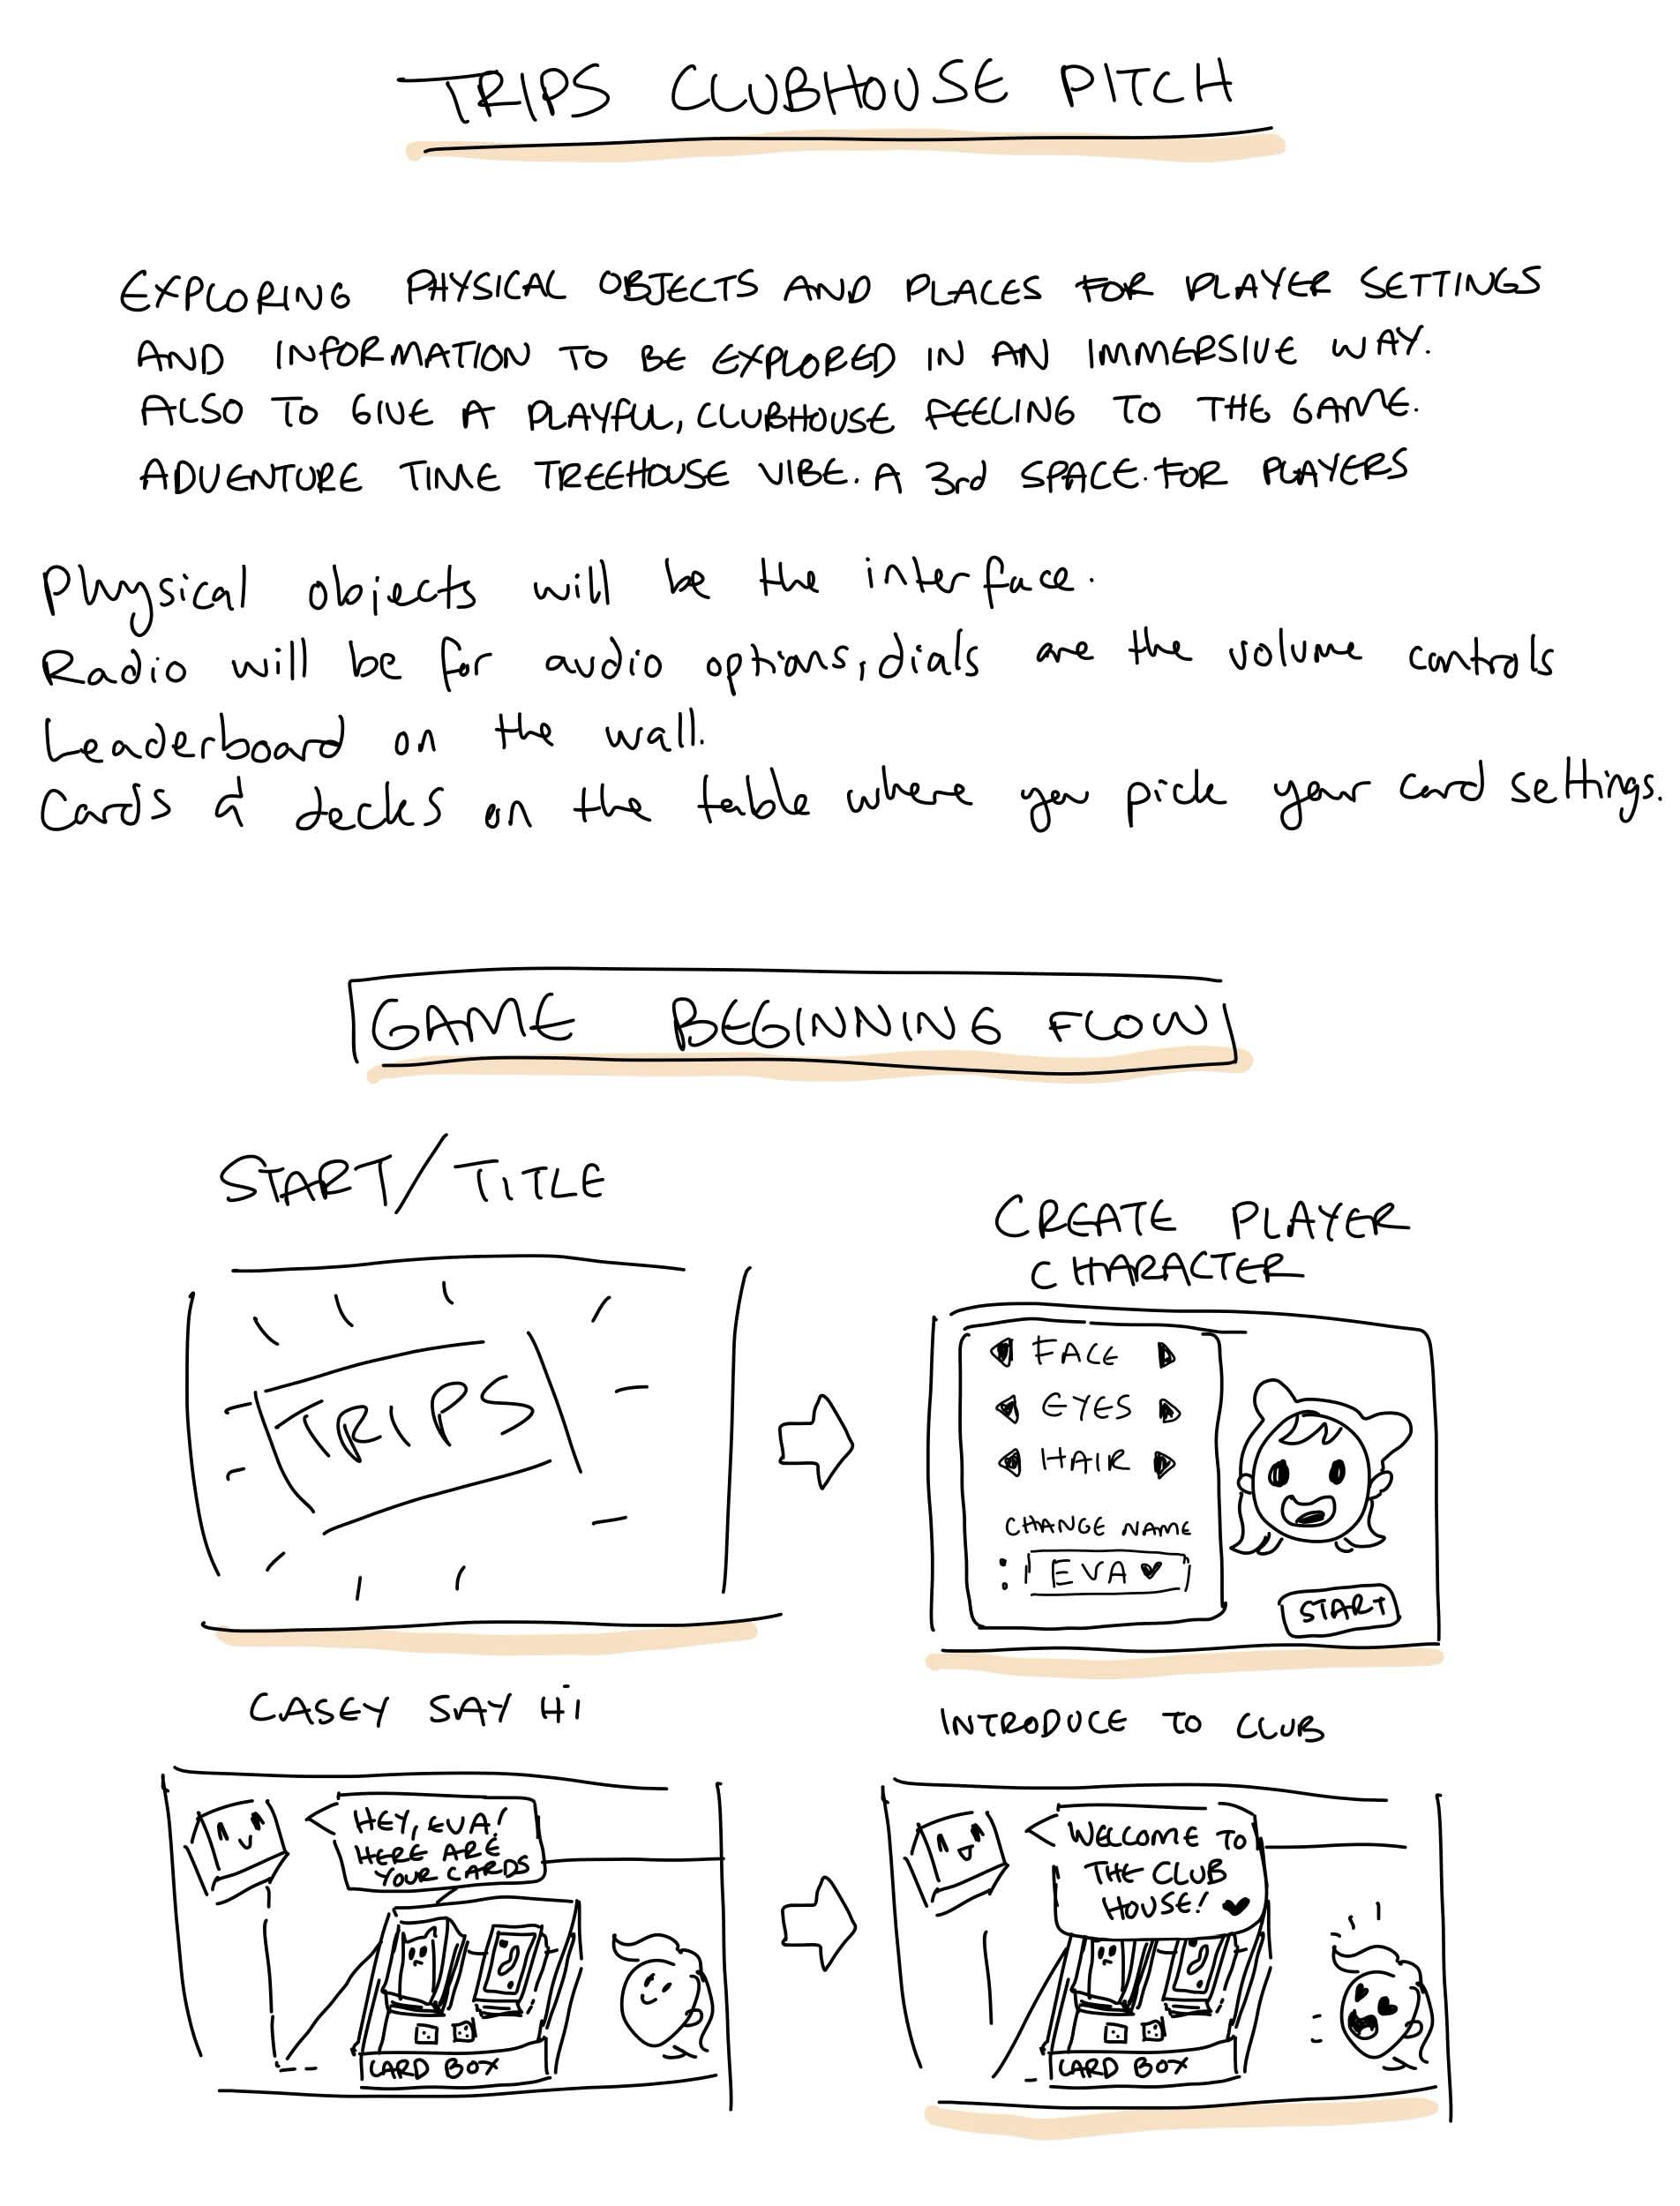 TRIPS CLUBHOUSE PITCH
EXPLORING PHYSICAL OBJECTS AND PLACES FOR PLAYER SETTINGS
AND INFORMATION TO BE EXPLORED IN AN IMMERSIVE WAY.
ALSO TO GIVE A PLAYFUL, CLUBHOUSE FEELING TO THE GAME.
ADVENTURE TIME TREEHOUSE VIBE. A 3rd SPACE. FOR PLAYERS
Physical objects will be the interface.
Radio will be for audio options, dials are the volume controls
Leaderboard on the wall.
Cards & decks on the table where you pick your card settings.
GAME BEGINNING FLOW
START/TITLE
TRIPS
CREATE PLAYER
CHARACTER
FACE
EYES
HAIR
CHANGE NAME
: EVA ♥
START
CASEY SAY Hi
HEY, EVA!
HERE ARE
YOUR CARDS
CARD BOX
INTRODUCE TO CLUB
WELCOME TO
THE CLUB
HOUSE! ♥
CARD BOX